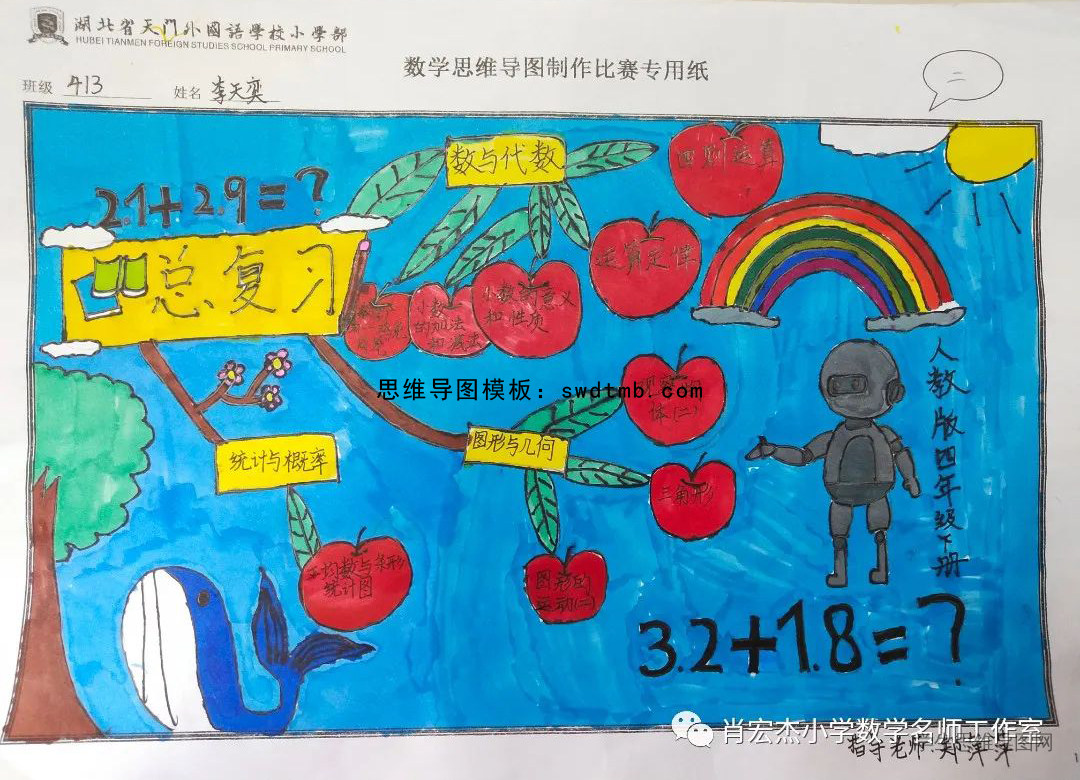 湖北省天門外國語學校小學部
HUBEI TIANMEN FOREIGN STUDIES SCHOOL PRIMARY SCHOOL
数学思维导图制作比赛专用纸
二
班级 413 姓名 李天奕
数与代数
四则运算
2.1+2.9=?
总复习
运算定律
小数的意义
和性质
小数
的加法
和减法
人教版四年级下册
思维导图模板：swdtmb.com
观察物
体(二)
图形与几何
统计与概率
三角形
平均数与条形
统计图
图形的
运动(二)
3.2+1.8=?
肖宏杰小学数学名师工作室
指导老师 郑萍萍
思维导图网